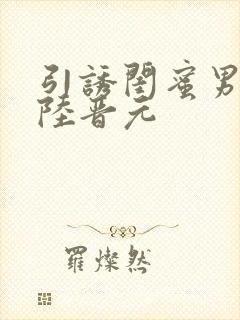 引誘閨蜜男
陸晋元
羅燦然